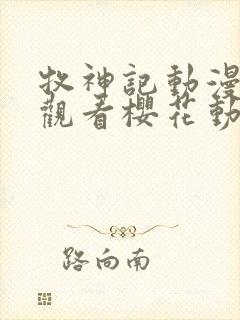 牧神記動漫
觀看櫻花動
路向南